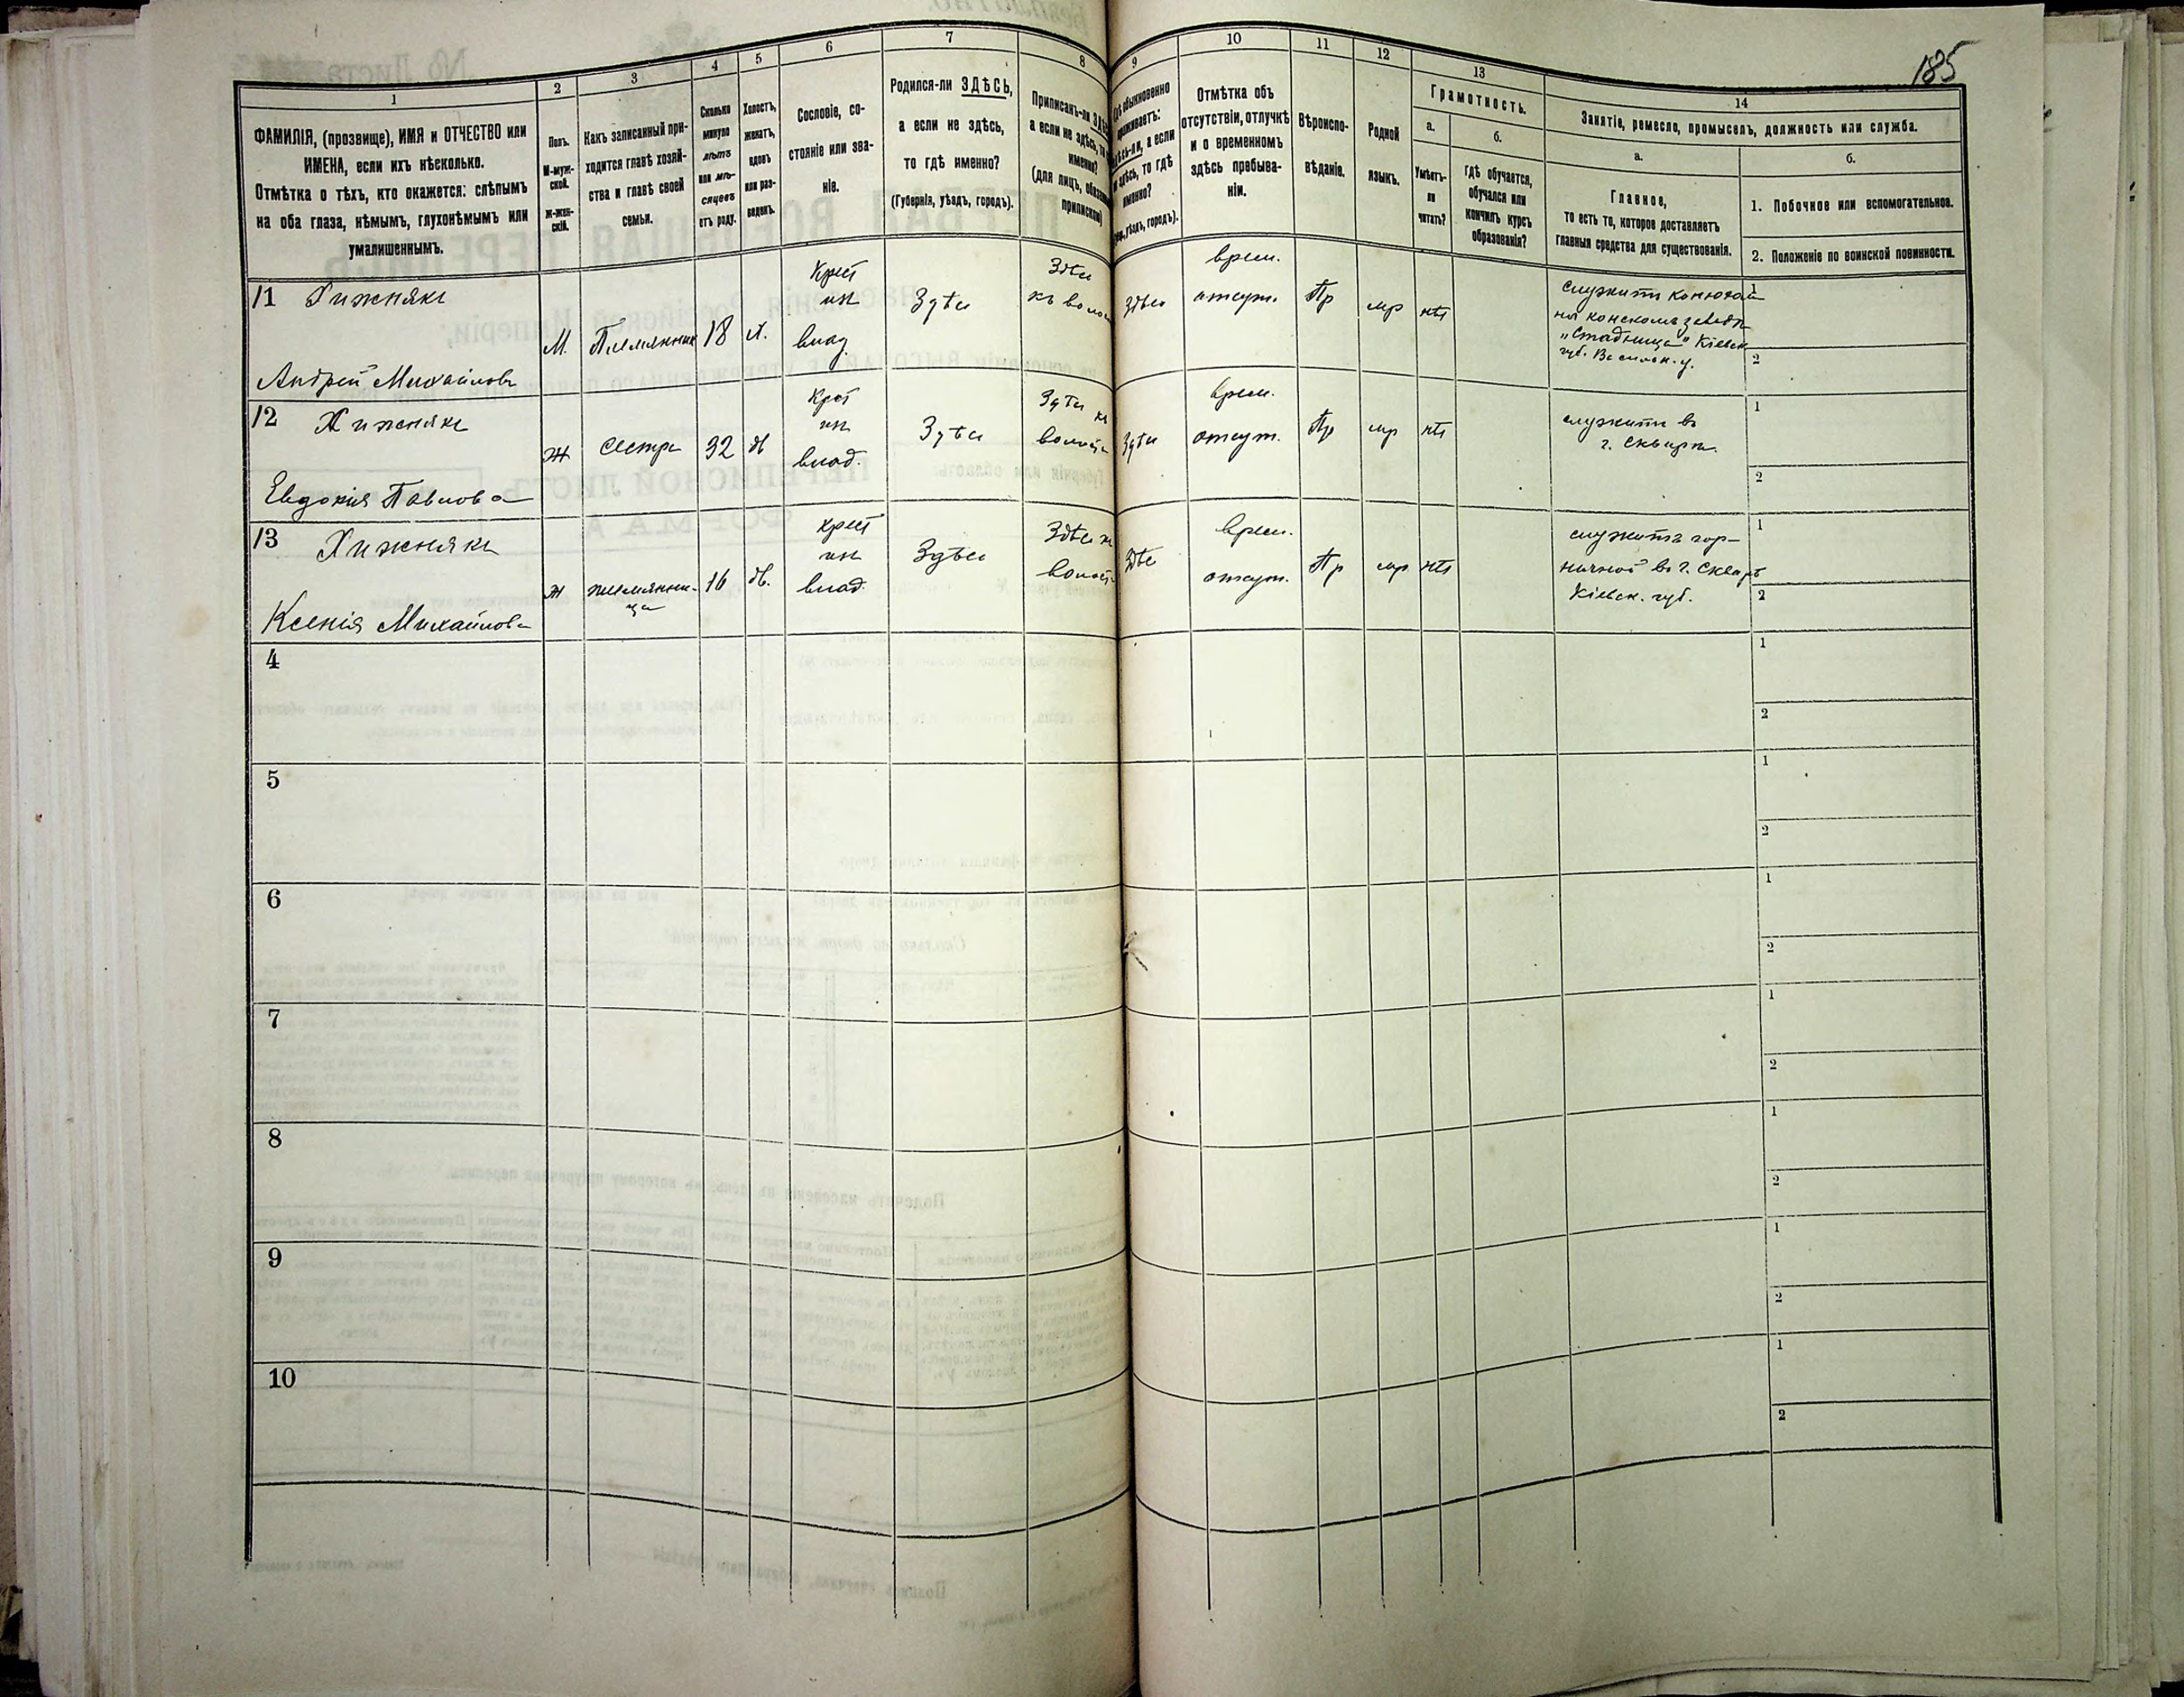 185
1
2
3
4
5
6
7
8
9
10
11
12
13
14
ФАМИЛІЯ, (прозвище), ИМЯ и ОТЧЕСТВО или
ИМЕНА, если ихъ нѣсколько.
Отмѣтка о тѣхъ, кто окажется: слѣпымъ
на оба глаза, нѣмымъ, глухонѣмымъ или
умалишеннымъ.
Полъ.
М-муж-
ской.
Ж-жен-
скій.
Какъ записанный при-
ходится главѣ хозяй-
ства и главѣ своей
семьи.
Сколько
минуло
лѣтъ
или мѣ-
сяцевъ
отъ роду.
Холостъ,
женатъ,
вдовъ
или раз-
веденъ.
Сословіе, со-
стояніе или зва-
ніе.
Родился-ли ЗДѢСЬ,
а если не здѣсь,
то гдѣ именно?
(Губернія, уѣздъ, городъ).
Приписанъ-ли
а если не здѣсь,
именно?
(для лицъ,
обыкновенно
проживаетъ:
а если
здѣсь, то гдѣ
именно?
уѣздъ, городъ).
Отмѣтка объ
отсутствіи, отлучкѣ
и о временномъ
здѣсь пребыва-
ніи.
Вѣроиспо-
вѣданіе.
Родной
языкъ.
Грамотность.
а.
б.
Умѣетъ-
ли
читать?
гдѣ обучается,
обучался или
кончилъ курсъ
образованія?
Занятіе, ремесло, промыселъ, должность или служба.
а.
б.
Главное,
то есть то, которое доставляетъ
главныя средства для существованія.
1. Побочное или вспомогательное.
2. Положеніе по воинской повинности.
11 Хижнякъ
Андрей Михайловъ
М.
Племянник
18
х.
Крест
из
влад.
Здѣсь
Здѣсь
къ
Здѣсь
врем.
отсут.
Пр
мр
нѣт
служитъ конюхом
на конском заводѣ
„Стадница" Кіевск
губ. Васильк. у.
1
2
12 Хижнякъ
Евдокія Павлова
Ж
Сестра
32
дѣ
Крест
из
влад.
Здѣсь
Здѣсь къ
волости
Здѣсь
врем.
отсут.
Пр
мр
нѣт
служитъ въ
г. Сквирѣ.
1
2
13 Хижнякъ
Ксенія Михайлова
ж
племянни-
ца
16
дѣ.
крест
из
влад.
Здѣсь
Здѣсь к
волост
Здѣс
врем.
отсут.
Пр
мр
нѣт
служитъ гор-
ничной въ г. Сквирѣ
Кіевск. губ.
1
2
4
1
2
5
1
2
6
1
2
7
1
2
8
1
2
9
1
2
10
1
2